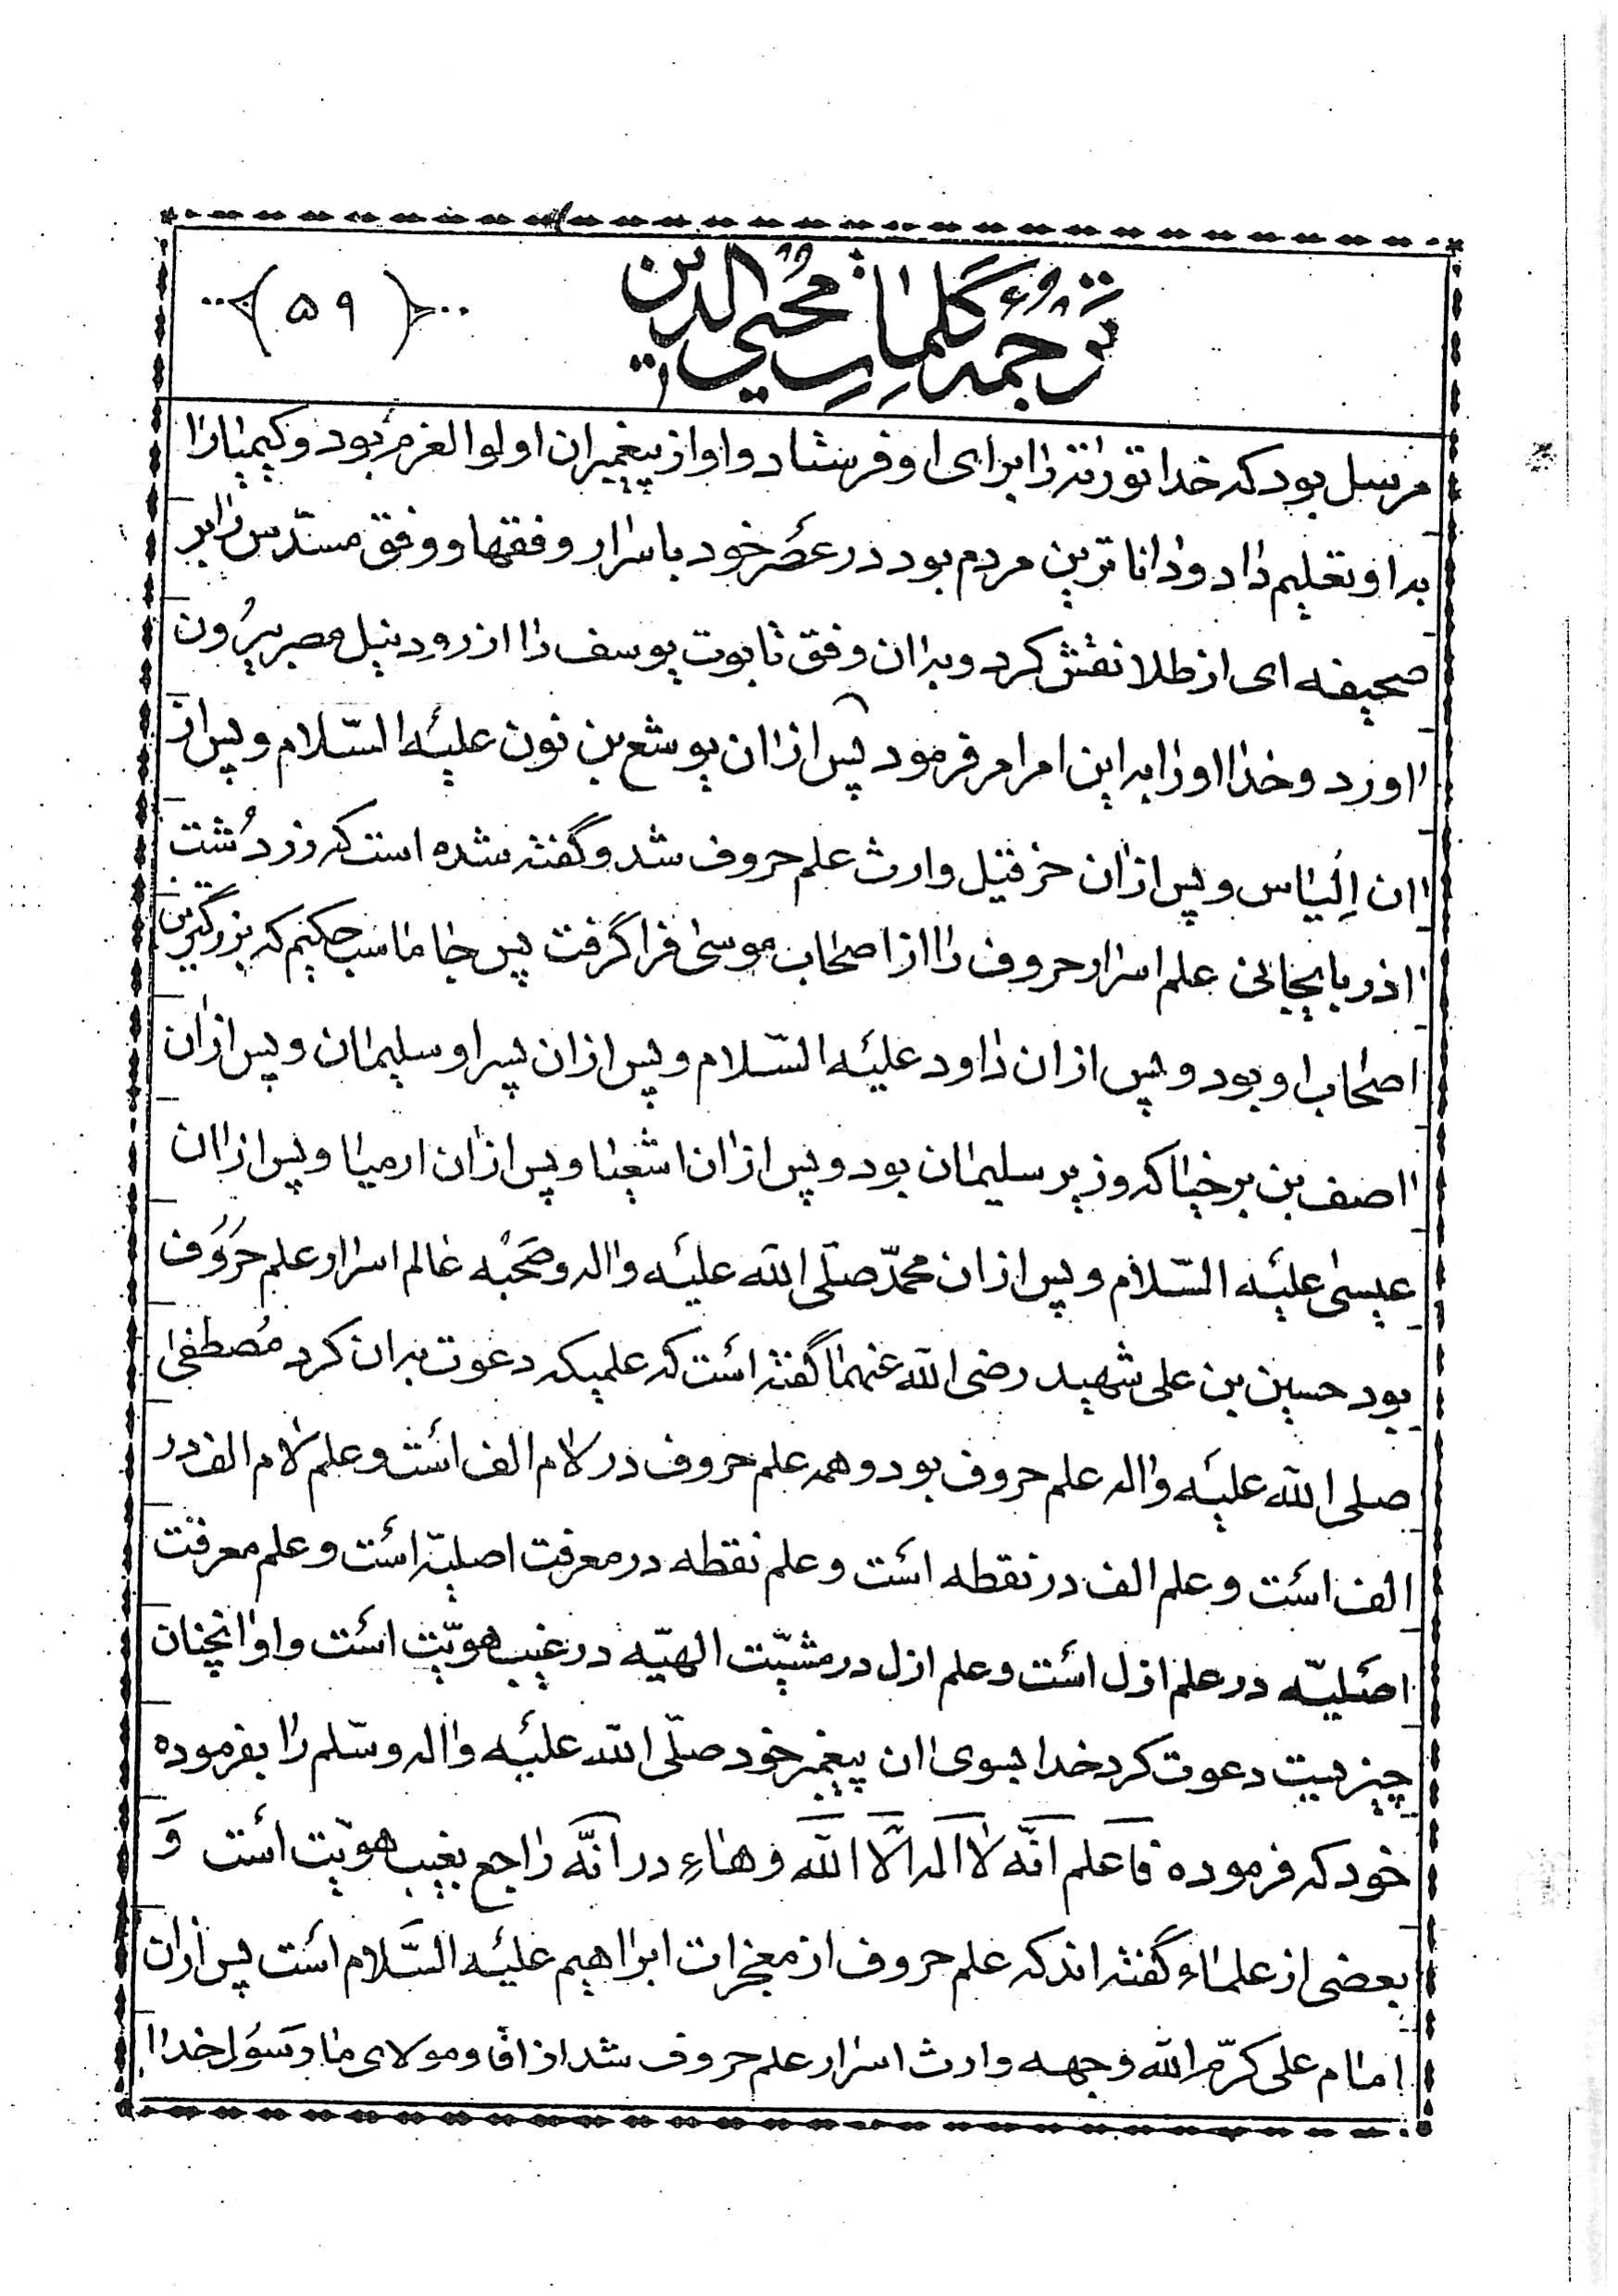 ترجمه کلمات محیی الدین
(۵۹)
مرسل بود که خدا توراة را برای او فرستاد و او از پیغمبران اولوا العزم بود و کیمیا را
به او تعلیم داد و داناترین مردم بود در عصر خود باسرار و فقها و وفق مسدّس را بر
صحیفه ای از طلا نقش کرد و به اان وفق تابوت یوسف را از رودِ نیل مصر بیرُون
ااورد و خدا او را به این امر امر فرمود پس از اان یوشع بن نون علیه السّلام و پس از
اان اِلیاس و پس از ان حزقیل وارث علم حروف شد و گفته شده است که زردُشت
ااذربایجانی علم اسرار حروف را از اصحاب موسی فرا گرفت پس جاماسب حکیم که بزرگترین
اصحاب او بود و پس از ان داود علیه السّلام و پس از ان پسر او سلیمان و پس از ان
ااصف بن برخیا که وزیر سلیمان بود و پس از اان اشعیا و پس از ان ارمیا و پس از اان
عیسی علیه السّلام و پس از ان محمّد صلّی الله علیه واله وصَحْبه عالم اسرار علم حرُوف
بود حسین بن علی شهید رضی الله عنهما گفته است که علمیکه دعوت به ان کرد مُصطفی
صلی الله علیه واله علم حروف بود و همه علم حروف در لام الف است و علم لام الف در
الف است و علم الف در نقطه است و علم نقطه در معرفت اصلیّه است و علم معرفت
اصلیّه در علم ازل است و علم ازل در مشیّت الهیّه در غیب هویّت است و او اانچنان
چیزیست دعوت کرد خدا بسوی اان پیغمبر خود صلّی الله علیه واله وسّلم را بفرموده
خود که فرموده فاعلم انّه لا اله الّا الله و هاءِ در انّه راجع بغیب هویّت است وَ
بعضی از علماء گفته اند که علم حروف از معجزات ابراهیم علیه السّلام است پس از ان
امام علی کرّم الله وجهه وارث اسرار علم حروف شد از اقا و مولای ما رسُول خدا